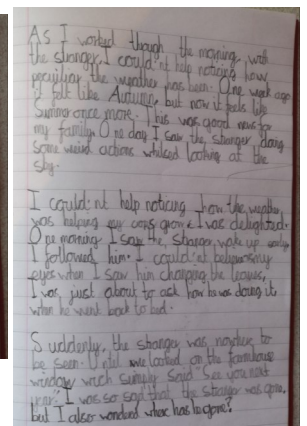 As I worked through the morning, with
the stranger, I could'nt help noticing how
peculiar the weather has been. One week ago
it felt like Autumn, but now it feels like
Summer once more. This was good news for
my family. One day I saw the stranger doing
some weird actions whilst looking at the
sky.
I could'nt help noticing how the weather
was helping my crops grow I was delighted.
One morning I saw the, stranger wake up early
I followed him. I could'nt my
eyes when I saw him changing the leaves,
I was just about to ask how he was doing it
when he went back to bed.
Suddenly, the stranger was nowhere to
be seen. Until we looked on the farmhouse
window wich simply said "See you next
year". I was so sad that the stranger was gone,
but I also wonderd where has he gone?